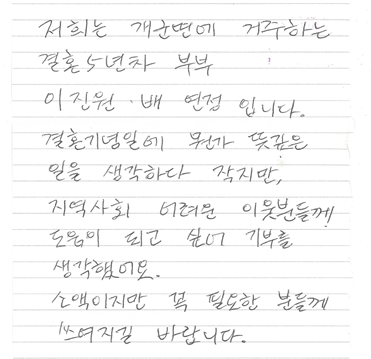 저희는 개군면에 거주하는
결혼 5년차 부부
이진원 · 배연정 입니다.
결혼기념일에 뭔가 뜻깊은
일을 생각하다 작지만,
지역사회 어려운 이웃분들께
도움이 되고 싶어 기부를
생각했어요.
소액이지만 꼭 필요한 분들께
쓰여지길 바랍니다.